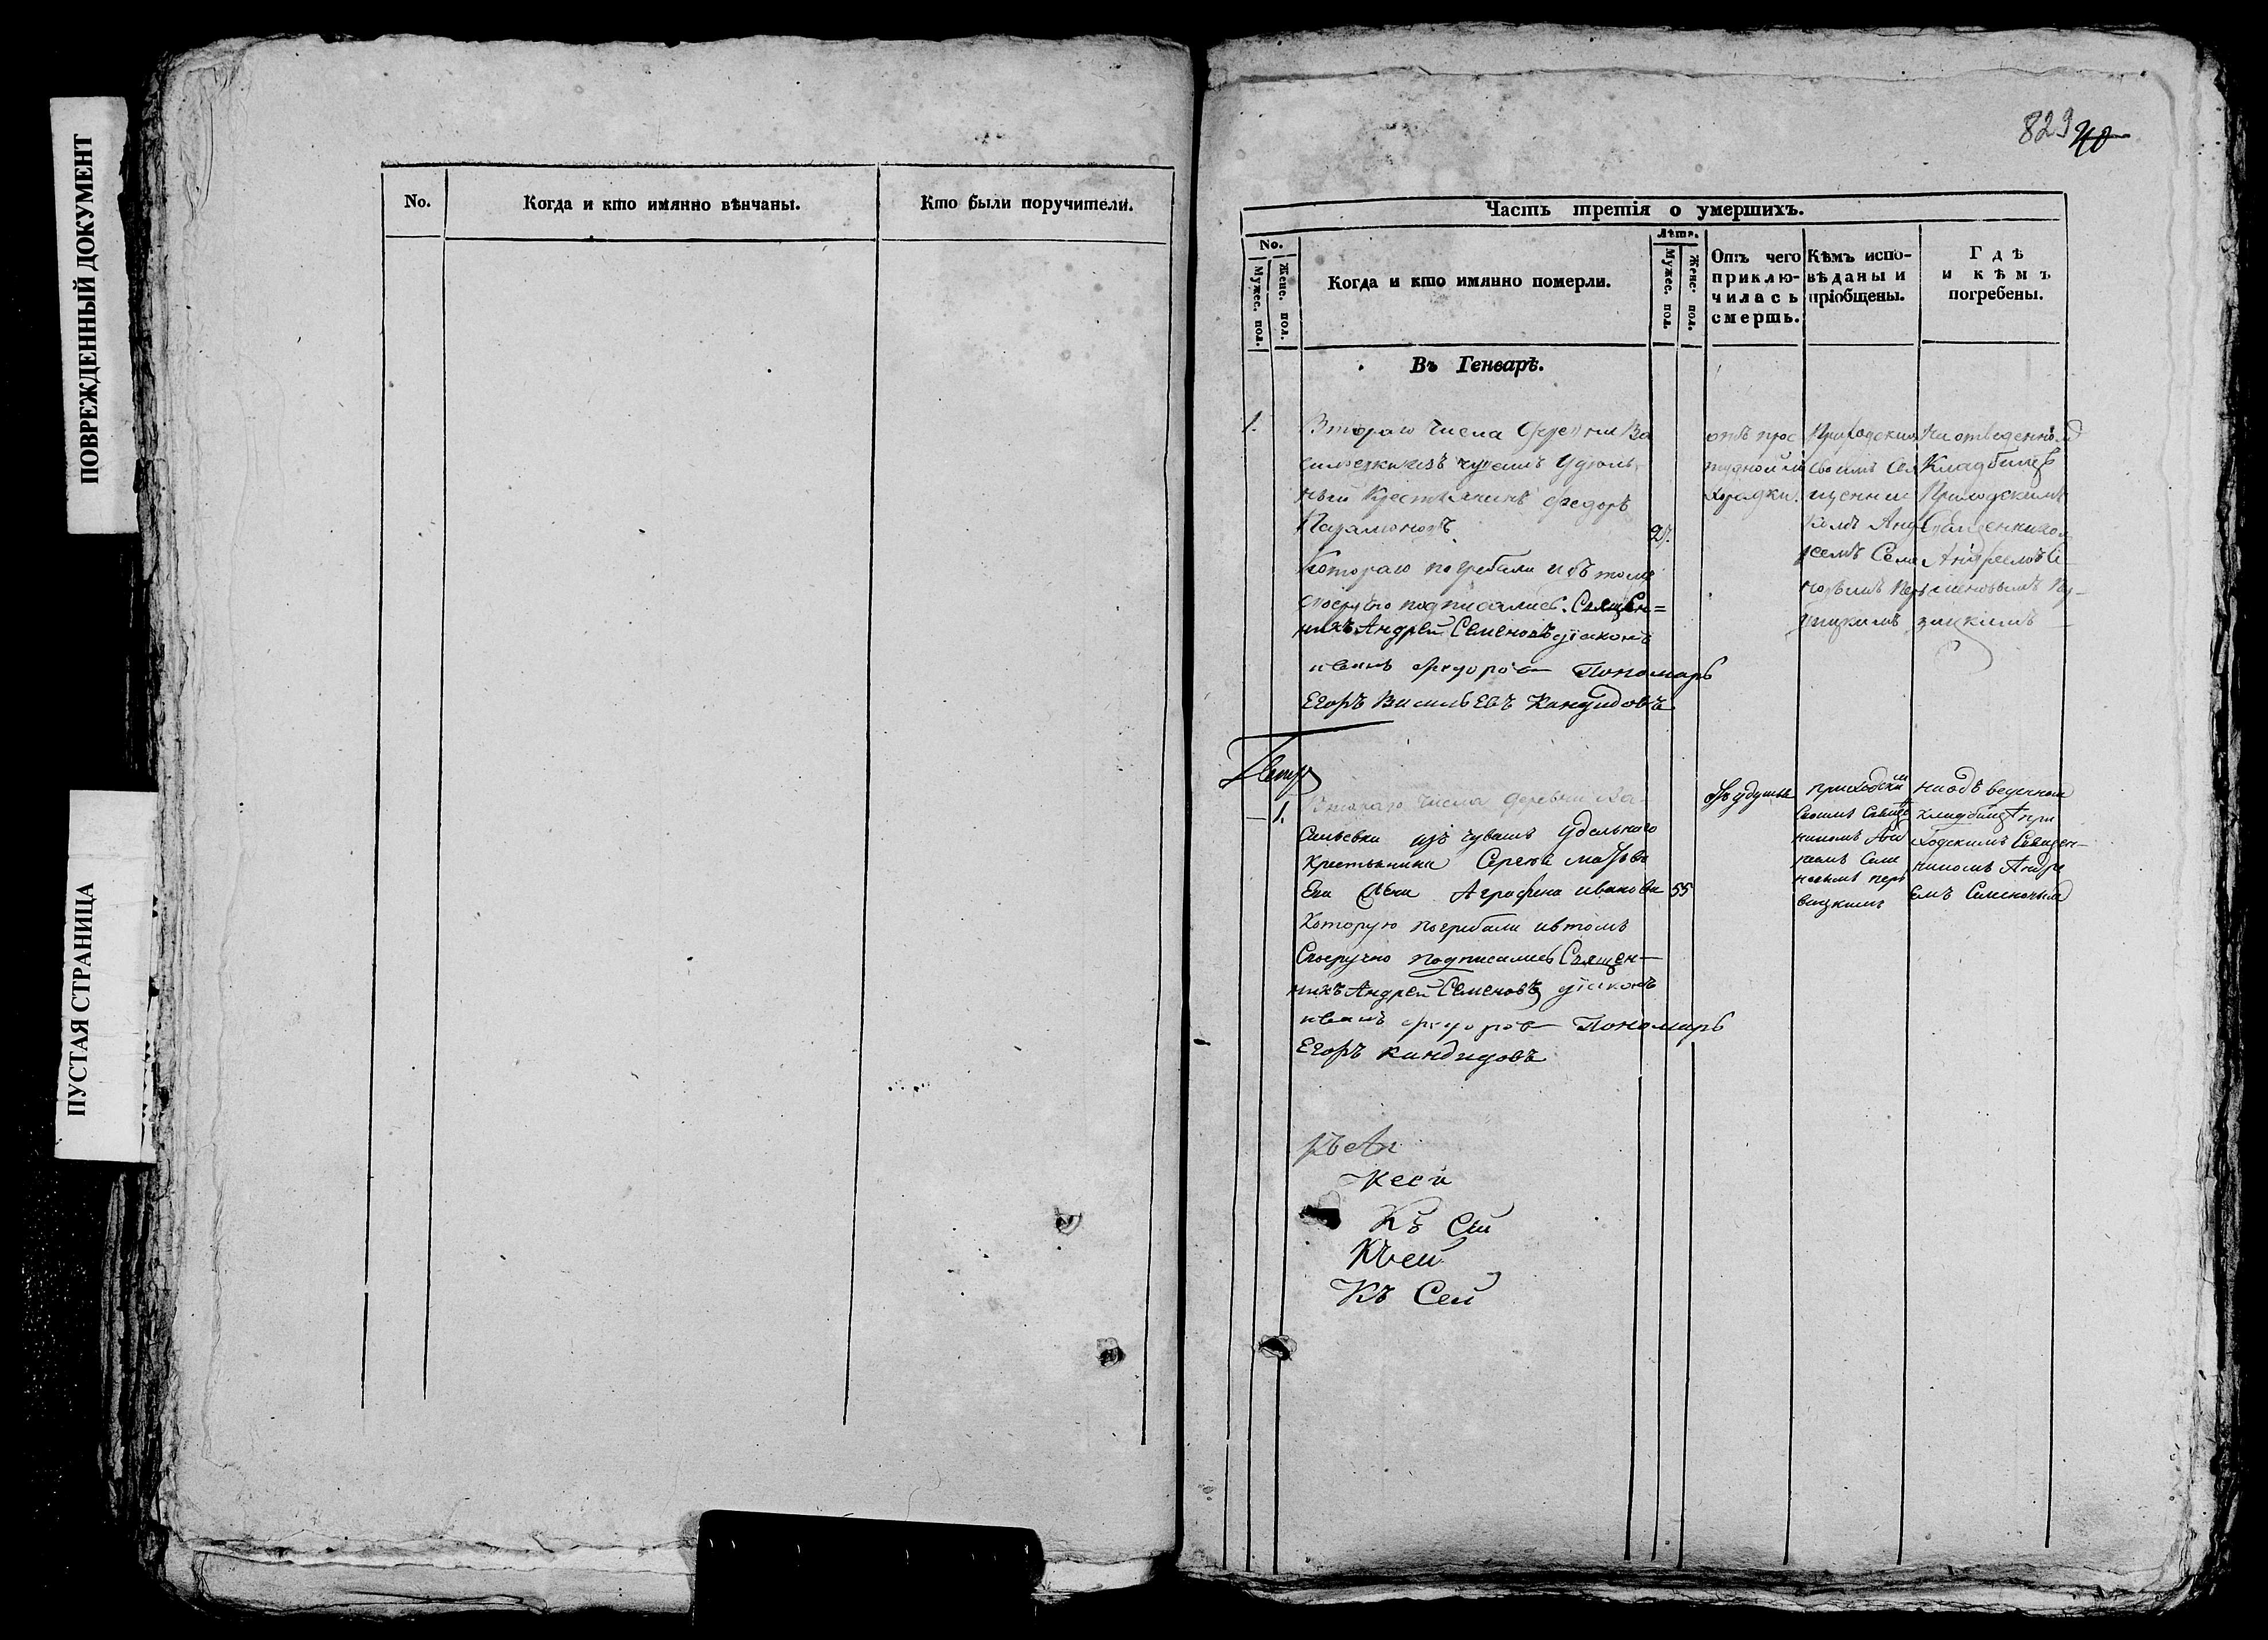 ПОВРЕЖДЕННЫЙ ДОКУМЕНТ
ПУСТАЯ СТРАНИЦА
No.
Когда и кто имянно вѣнчаны.
Кто были поручители.
829 40
Часть третія о умершихъ.
No.
Мужес. пол.
Женс. пол.
Когда и кто имянно померли.
Лѣта.
Мужес. пол.
Женс. пол.
Отъ чего
приклю-
чилась
смерть.
Кѣмъ испо-
вѣданы и
пріобщены.
Гдѣ
и кѣмъ
погребены.
Въ Генварѣ.
1.
Втораго числа деревни Ва
сильевки изъ чувашъ Удѣль
ный Крестьянинъ Федоръ
Парамоновъ.
27.
Котораго погребали и въ томъ
своеручно подписались. Священ=
никъ Андрей Семеновъ діаконъ
иванъ федоровъ Пономарь
Егоръ Васильевъ Кандидовъ
отъ прос
тудной ли
хорадки.
Приходским
своимъ Свя
щенни
комъ Анд
реемъ Семе
новымъ
На отведенном
Кладбищѣ
Приходскимъ
Священником
Андреемъ Се
меновымъ
1.
Втораго числа деревни Ва-
сильевки изъ чувашъ Удельного
Крестьянина Сергея
Его жена Аграфена иванова
55
Которую погребали ивтомъ
Своеручно подписались Священ-
никъ Андрей Семеновъ діаконъ
иванъ федоровъ Пономарь
Егоръ кандидовъ
приходским
Своимъ Свяще
никомъ Анд
реемъ Семе
новымъ
наодъведеном
кладбищѣ при
ходскимъ Священ-
никомъ Андре
емъ Семеновым
Къ Сей
Къ ей
Къ Сей